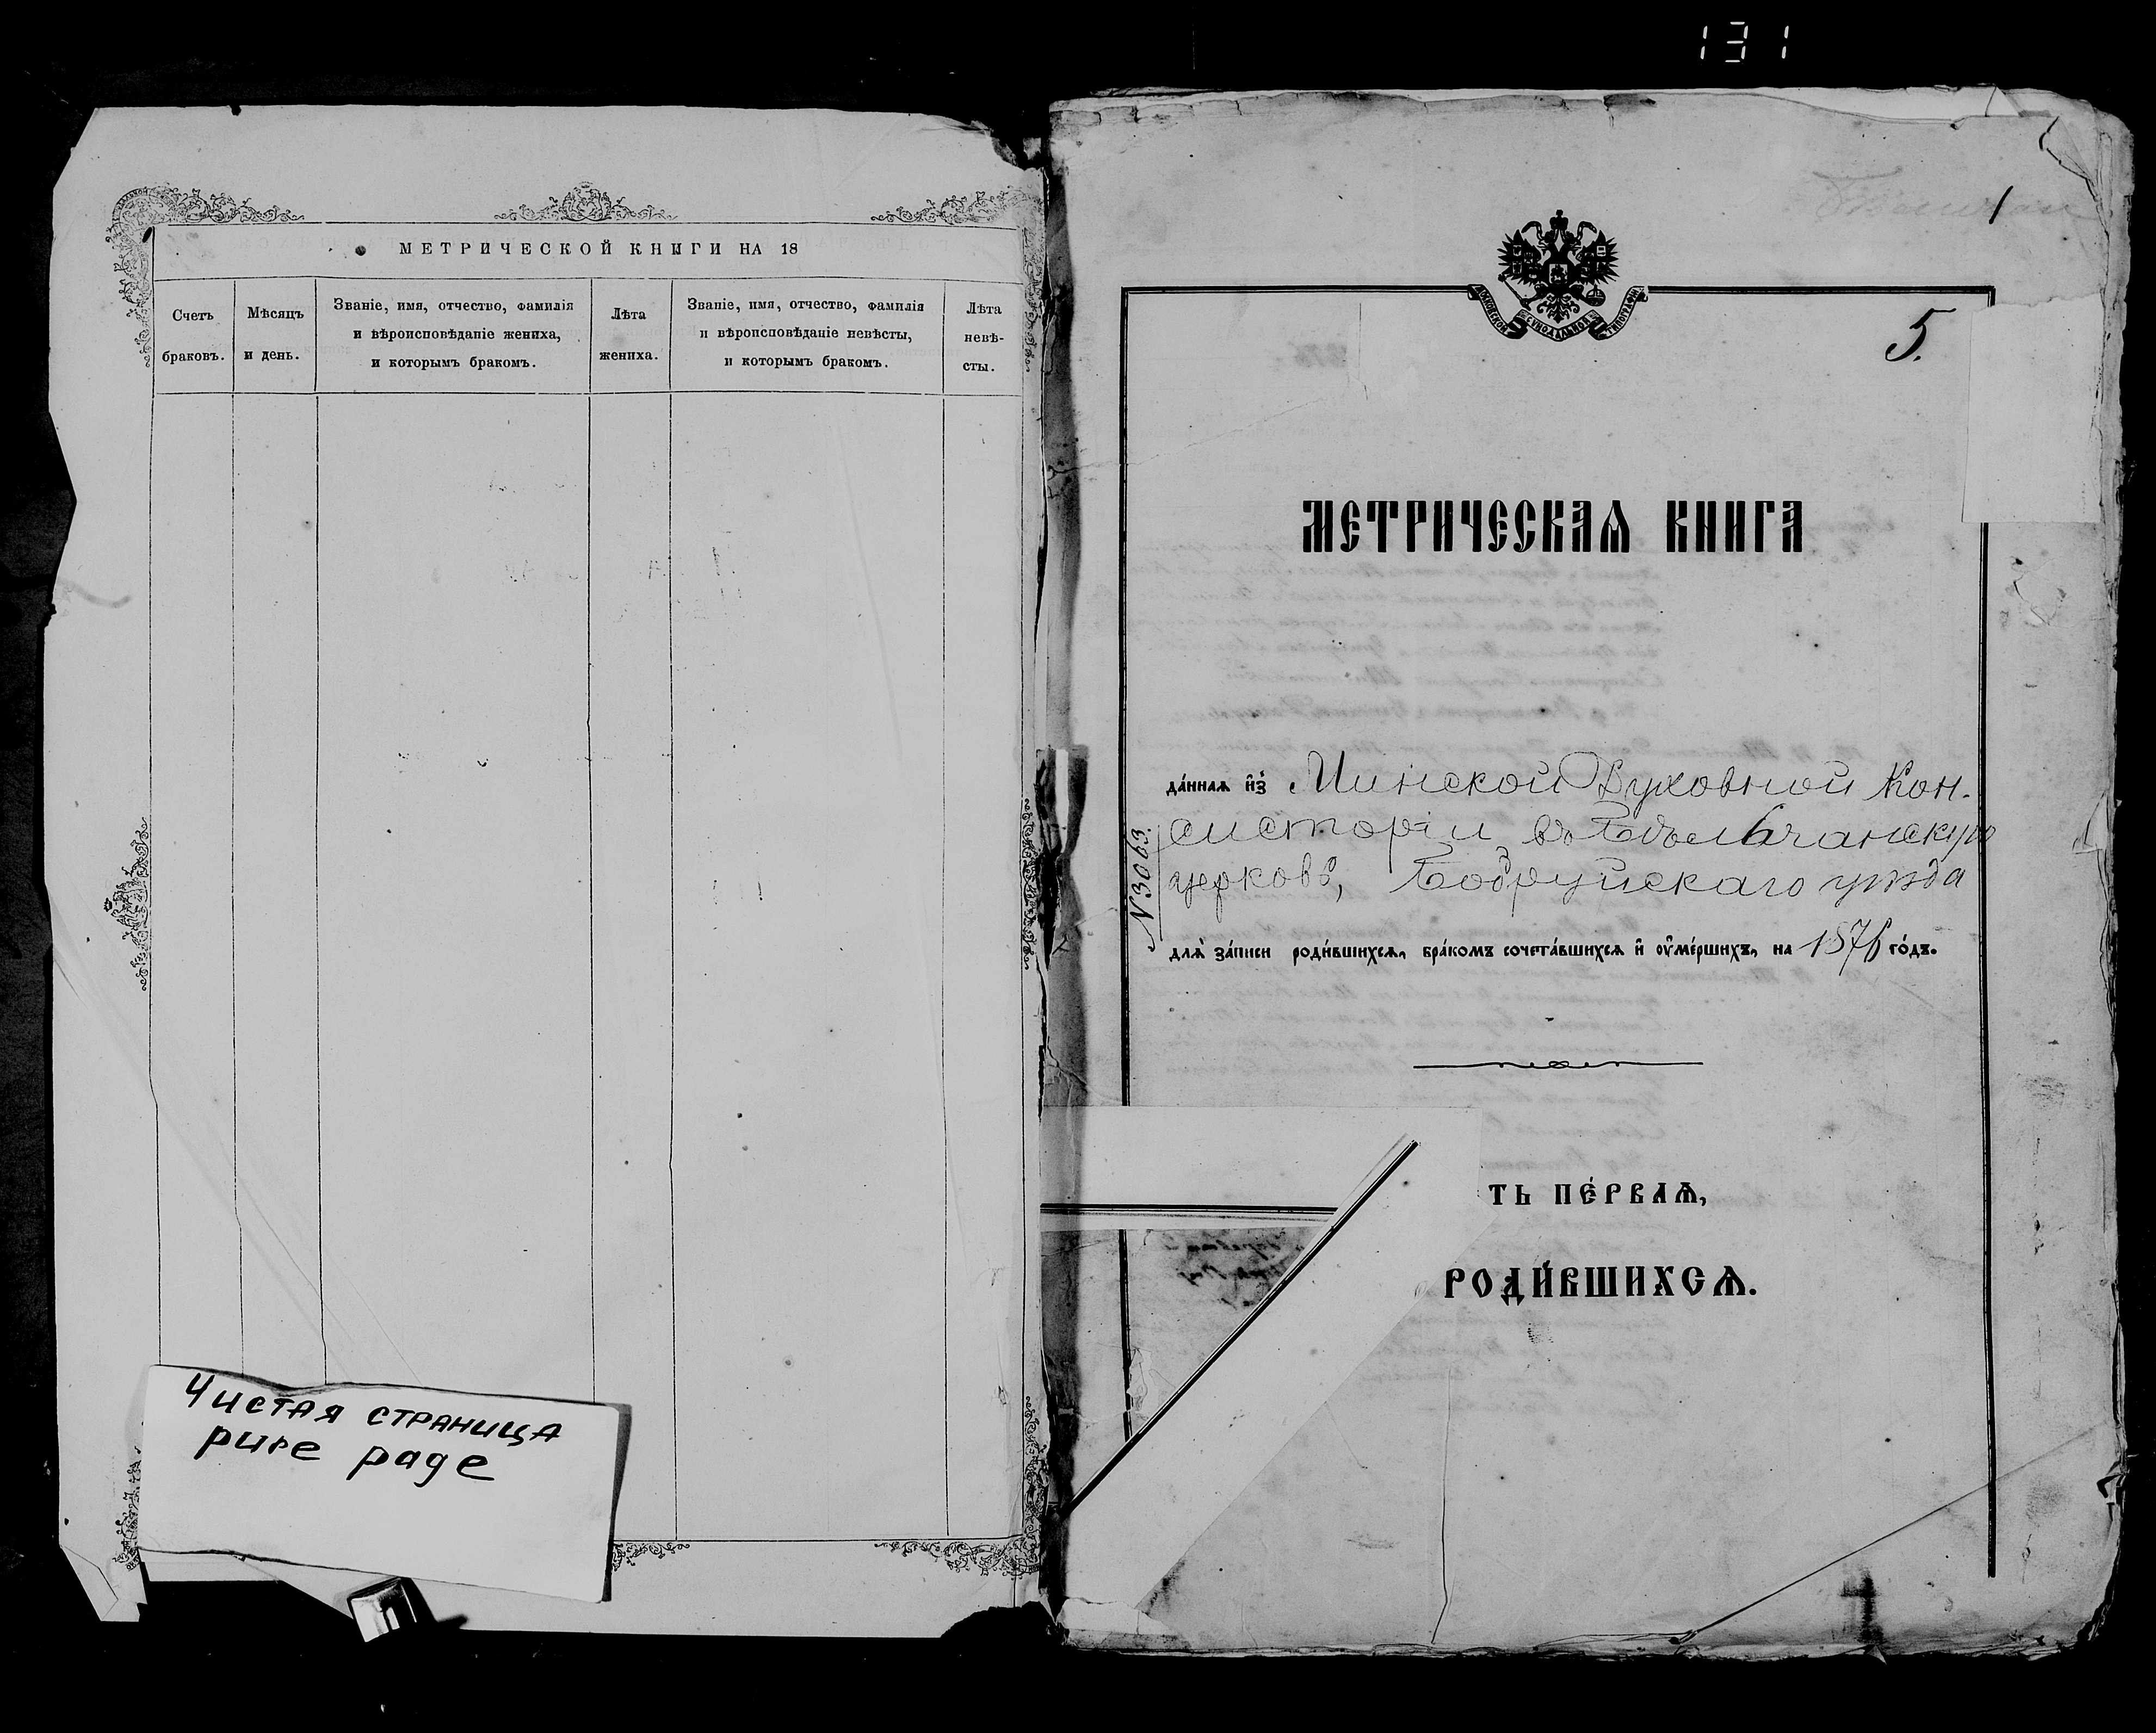 131
МЕТРИЧЕСКОЙ КНИГИ НА 18
Счетъ браковъ.
Мѣсяцъ и день.
Званіе, имя, отчество, фамилія
и вѣроисповѣданіе жениха,
и которымъ бракомъ.
Лѣта жениха.
Званіе, имя, отчество, фамилія
и вѣроисповѣданіе невѣсты,
и которымъ бракомъ.
Лѣта невѣ-
сты.
Чистая страница
pure page
1
МОСКОВСКОЙ СѴНОДАЛЬНОЙ ТИПОГРАФІИ
5.
МЕТРИЧЕСКАѦ КНИГА
да́ннаѧ и҆з̾ Минской Духовной Кон-
систоріи въ
церковь, Бобруйскаго уѣзда
№ 3063
длѧ̀ за́писи роди́вшихсѧ, бра́комъ сочета́вшихсѧ и҆ оу҆ме́ршихъ, на 1876 го́дъ.
ТЬ ПЕ́РВАѦ,
РОДИ́ВШИХСѦ.